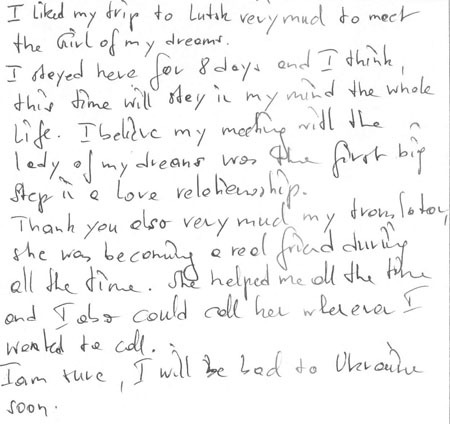 I liked my trip to Lutsk very much to meet
the Girl of my dreams.
I steyed here for 8 days and I think,
this time will stey in my mind the whole
Life. I believe my meeting with the
lady of my dreams was the first big
step in a Love relationship.
Thank you also very much my translator,
she was becoming a real friend during
all the time. She helped me all the time
and I also could call her wherever I
wanted to call.
I am sure, I will be back to Ukraine
soon.